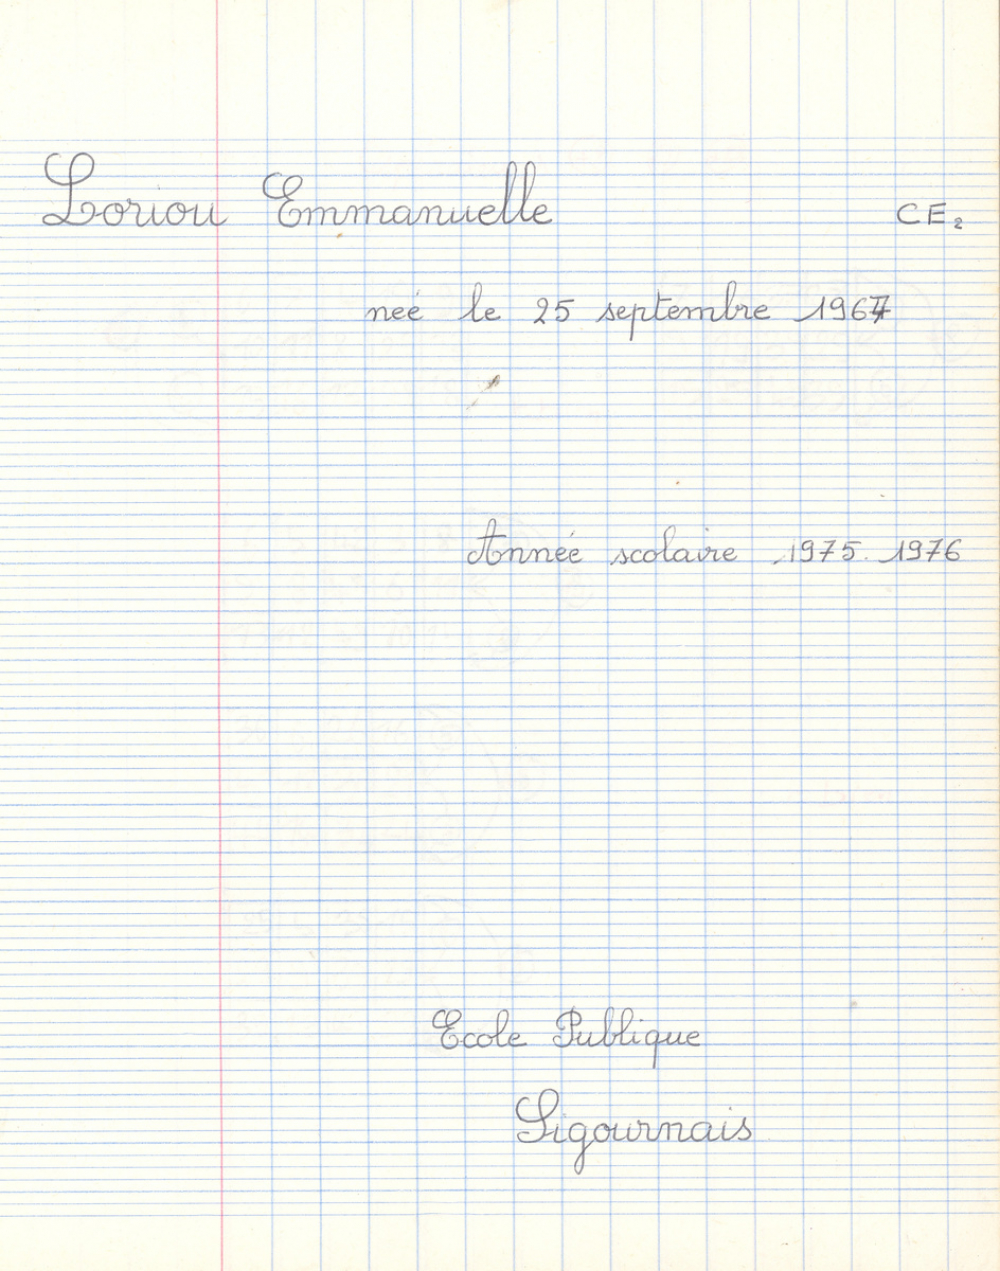 Loriou Emmanuelle CE₂
neé le 25 septembre 1967
Anneé scolaire 1975. 1976
Ecole Publique
Sigournais